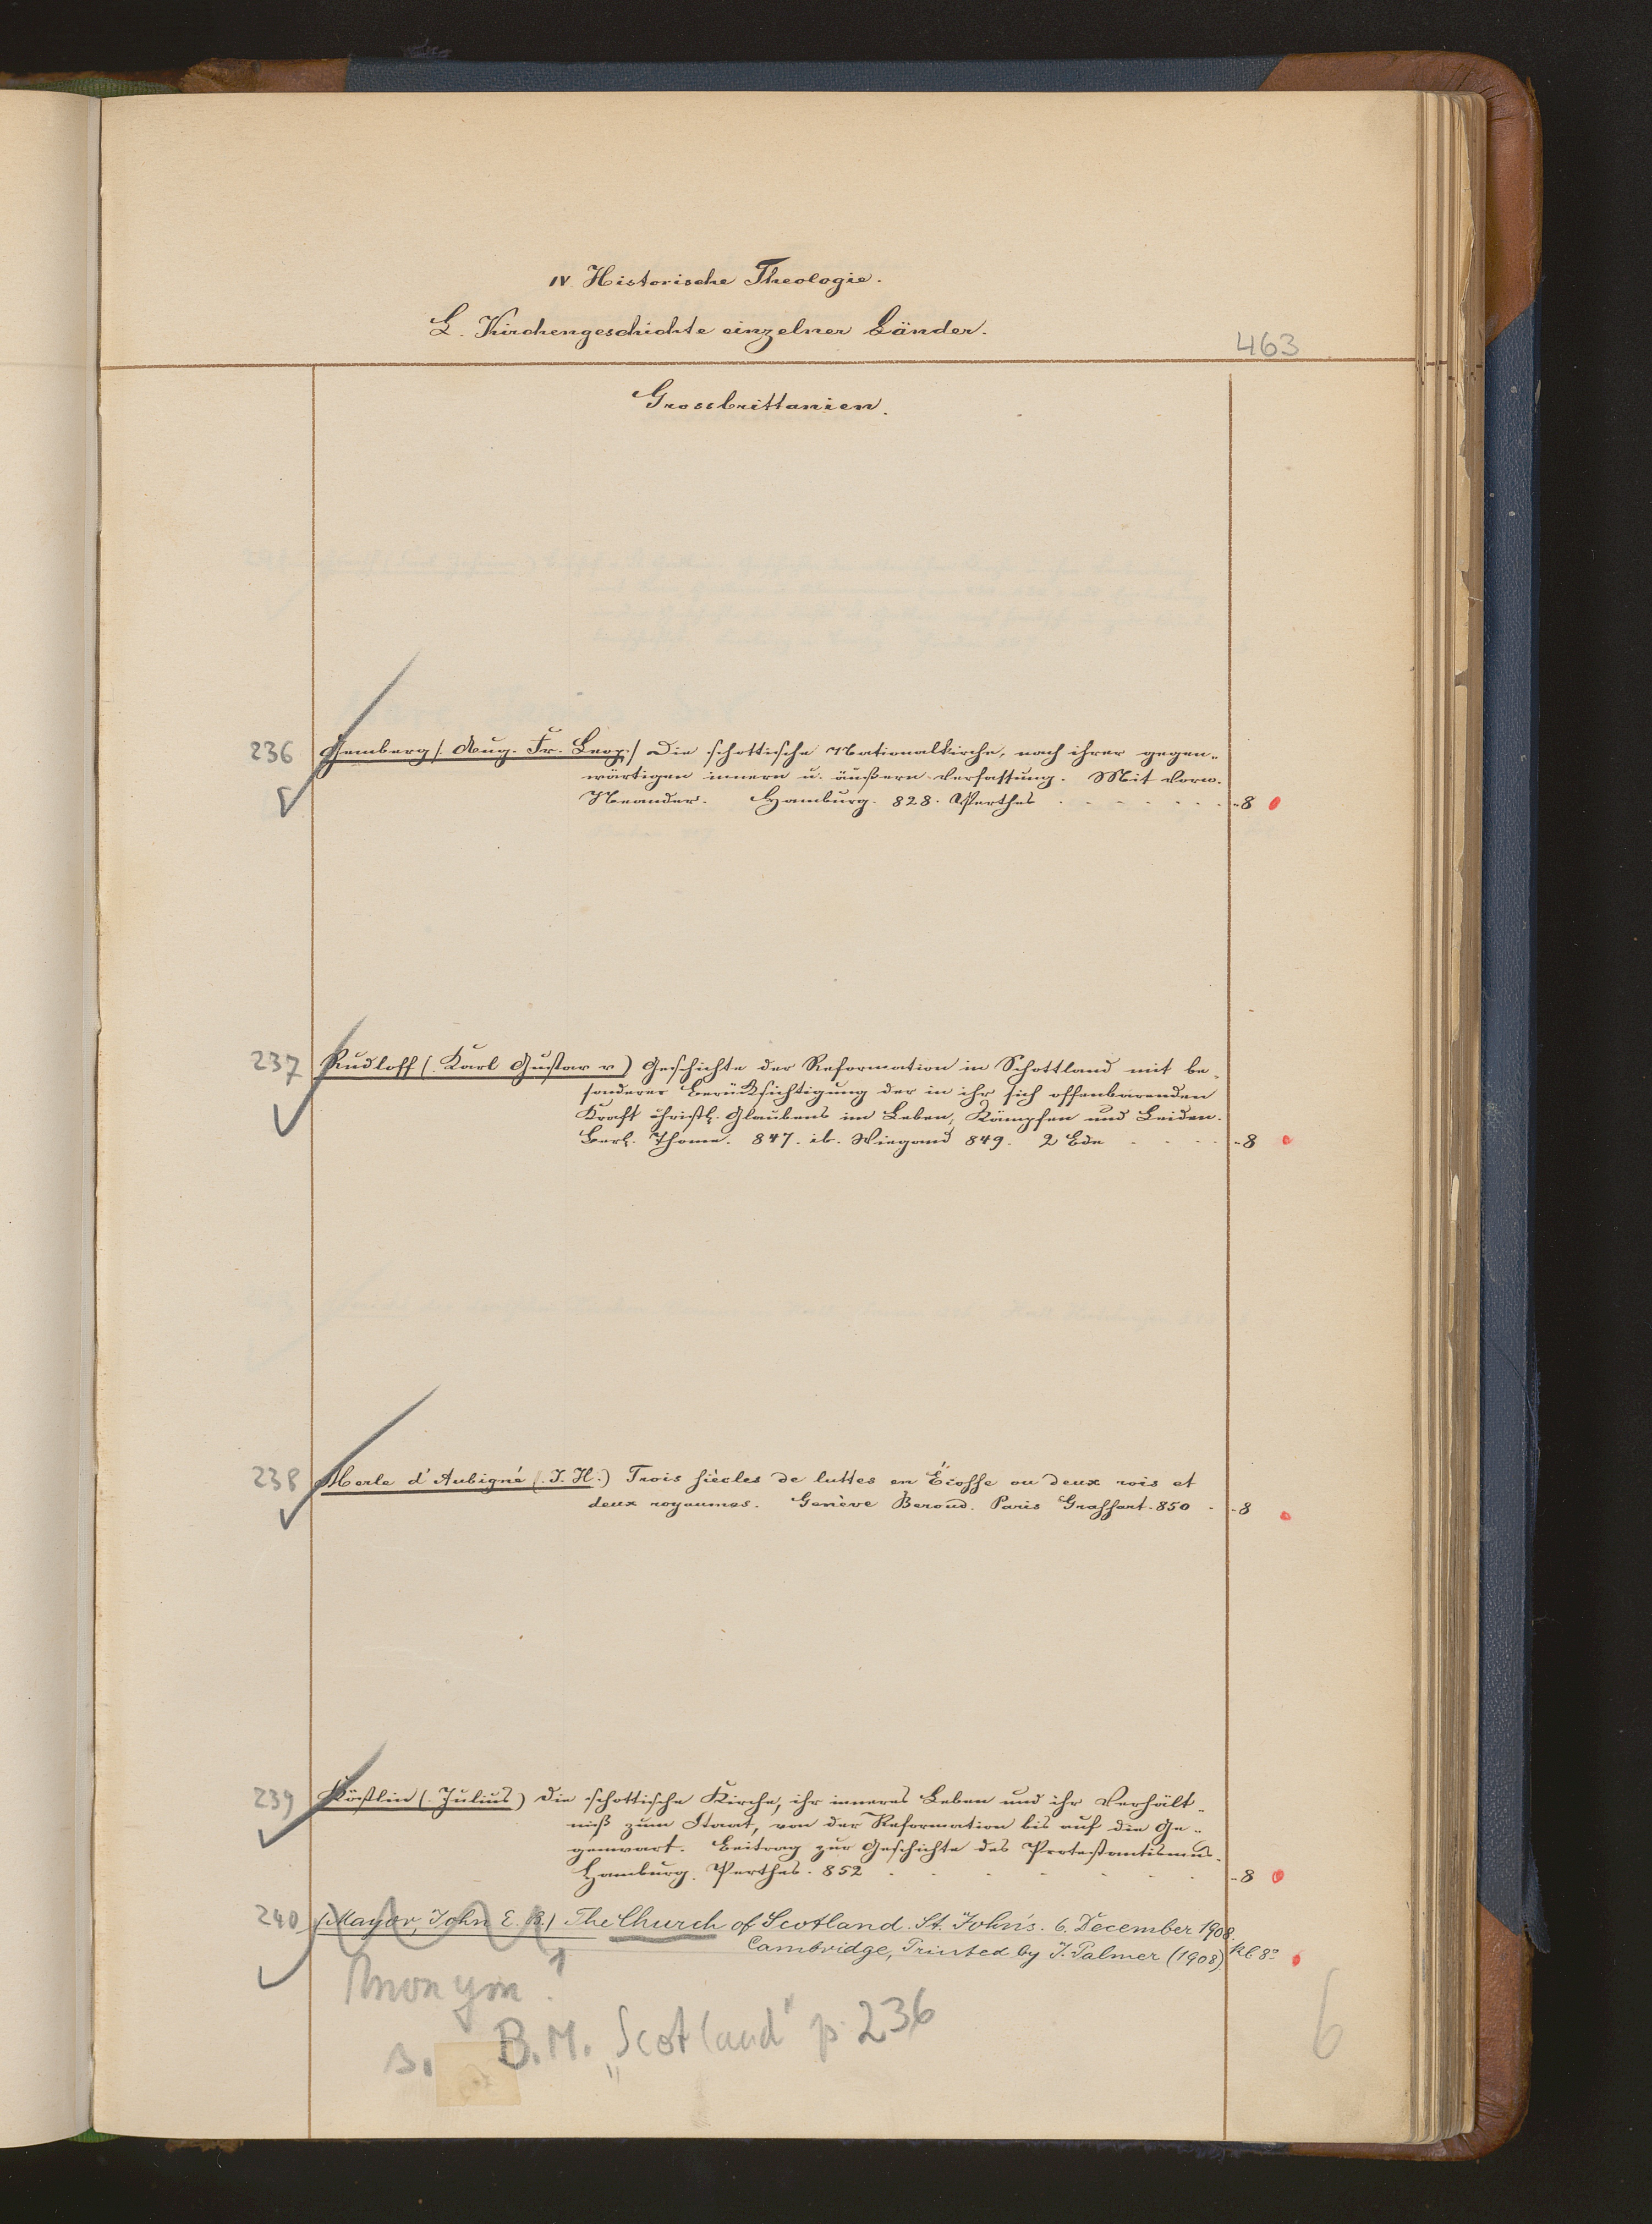 IV. Historische Theologie.
L. Kirchengeschichte einzelner Länder.
463
Grossbrittanien.
236 Gemberg (. Aug. Fr. Leop.) Die schottische Nationalkirche, nach ihrer gegen-
wärtigen innern u. äußern Verfassung. Mit Vorw.
Neander. Hamburg. 828. Perthes . . . . . . . -8
237 Rudloff (. Karl Gustav v) Geschichte der Reformation in Schottland mit be-
sonderer Berücksichtigung der in ihr sich offenbarenden
Kraft christl. Glaubens im Leben, Kämpfen und Leiden.
Berl. Thome. 847. ib. Wiegand 849. 2 Bde . . . . -8
238 Merle d'Aubigné (. J. H.) Trois siècles de luttes en Écosse ou deux rois et
deux royaumes. Genève Beroud. Paris Grassart. 850 . -8
239 Köstlin (. Julius) Die schottische Kirche, ihr inneres Leben und ihr Verhält-
niß zum Staat, von der Reformation bis auf die Ge-
genwart. Beitrag zur Geschichte des Protestantismus.
Hamburg. Perthes. 852 . . . . . . . -8
240 (Mayor, John E. B.) The Church of Scotland. St. John's. 6. December 1908.
Cambridge, Printed by J. Palmer (1908). kl 8°
Anonym!
s. B.M. „Scotland" p. 236
6